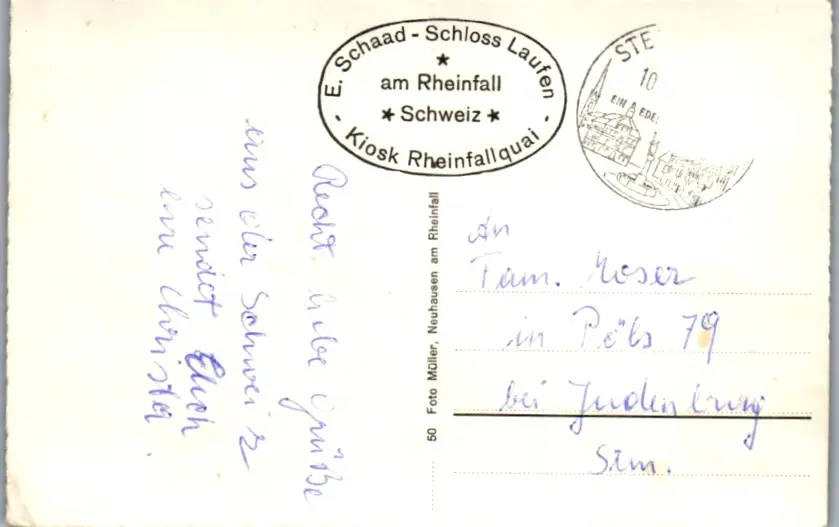 E. Schaad - Schloss Laufen
am Rheinfall
Schweiz
- Kiosk Rheinfallquai -
STE
10
EIN EDE
Recht liebe Grüße
aus der Schweiz
sendet Euch
eure Christa.
50 Foto Müller, Neuhausen am Rheinfall
An
Fam. Moser
in Pöls 79
bei Judenburg
Stm.